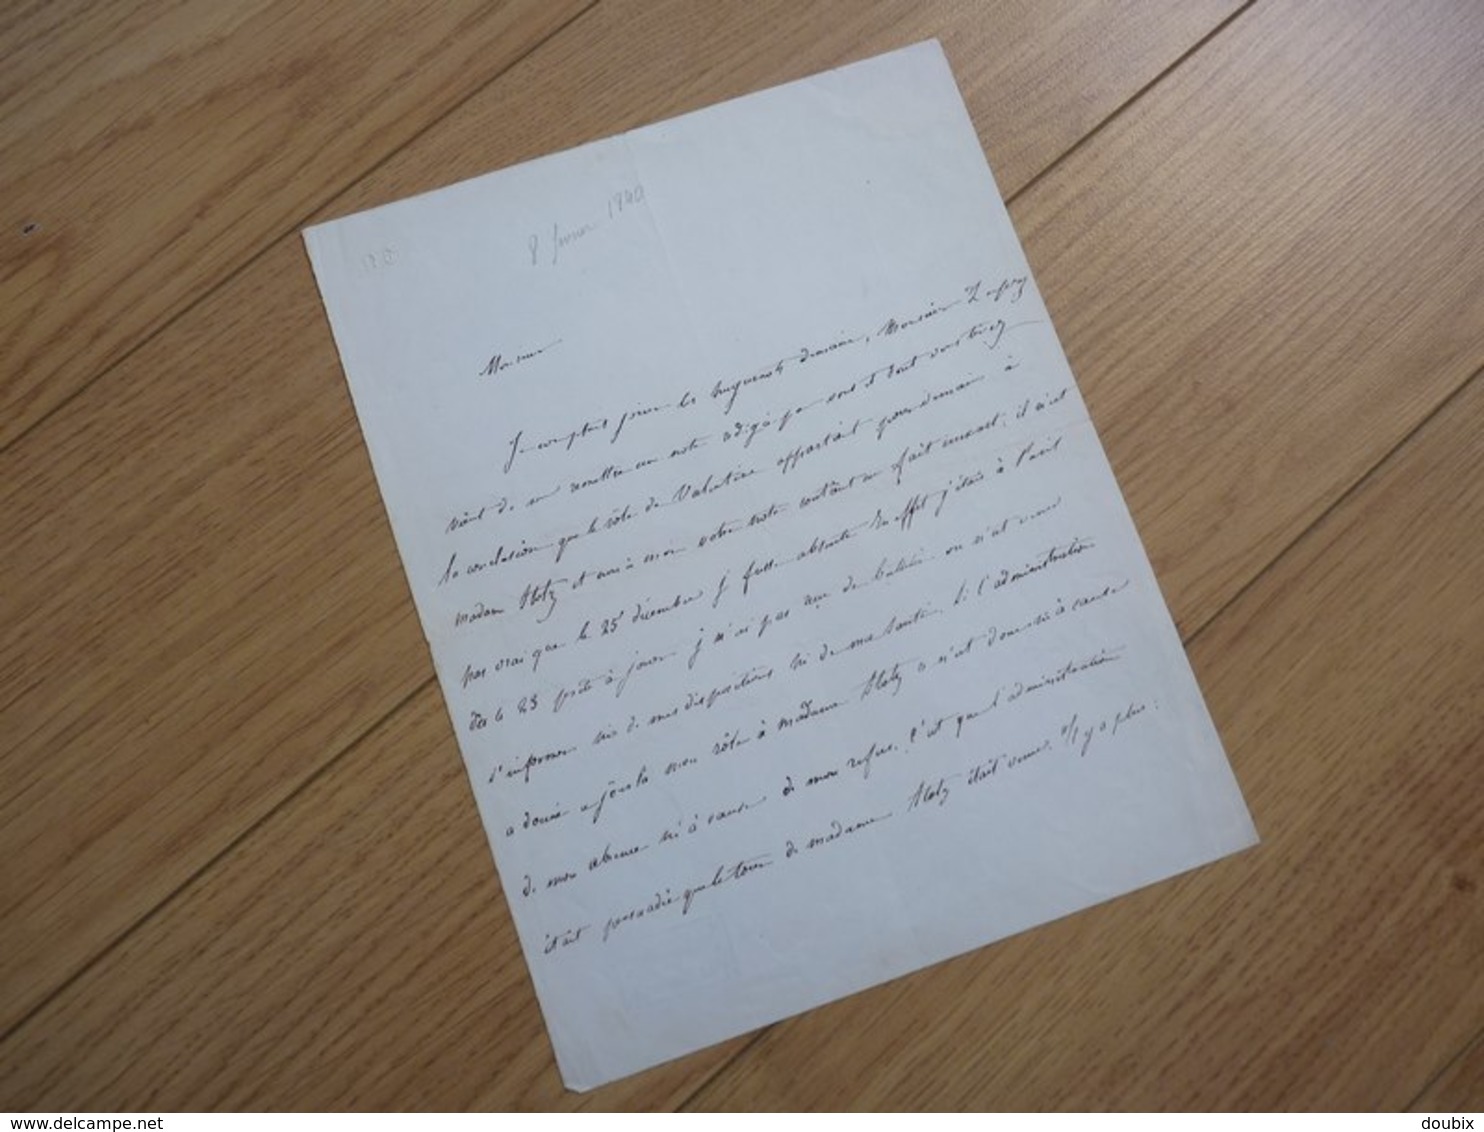 8 février 1840
Monsieur
Je comptais jouer les huguenots demain, Monsieur
vient de me remettre une note rédigée par vous et dont vous tirez
la conclusion que le rôle de Valentine appartient pour demain à
madame Stolz et non à moi votre note contient un fait inexact, il n'est
pas vrai que le 25 décembre je fusse absente en effet j'étais à Paris
dès le 23 prête à jouer je n'ai pas reçu de bulletin on n'est venu
s'informer ni de mes dispositions ni de ma santé. Si l'administration
a donné ce jour là mon rôle à madame Stolz ce n'est donc ni à cause
de mon absence ni à cause de mon refus, c'est que l'administration
était persuadée que le tour de madame Stolz était venu. il y a plus:
delcampe.net
doubix